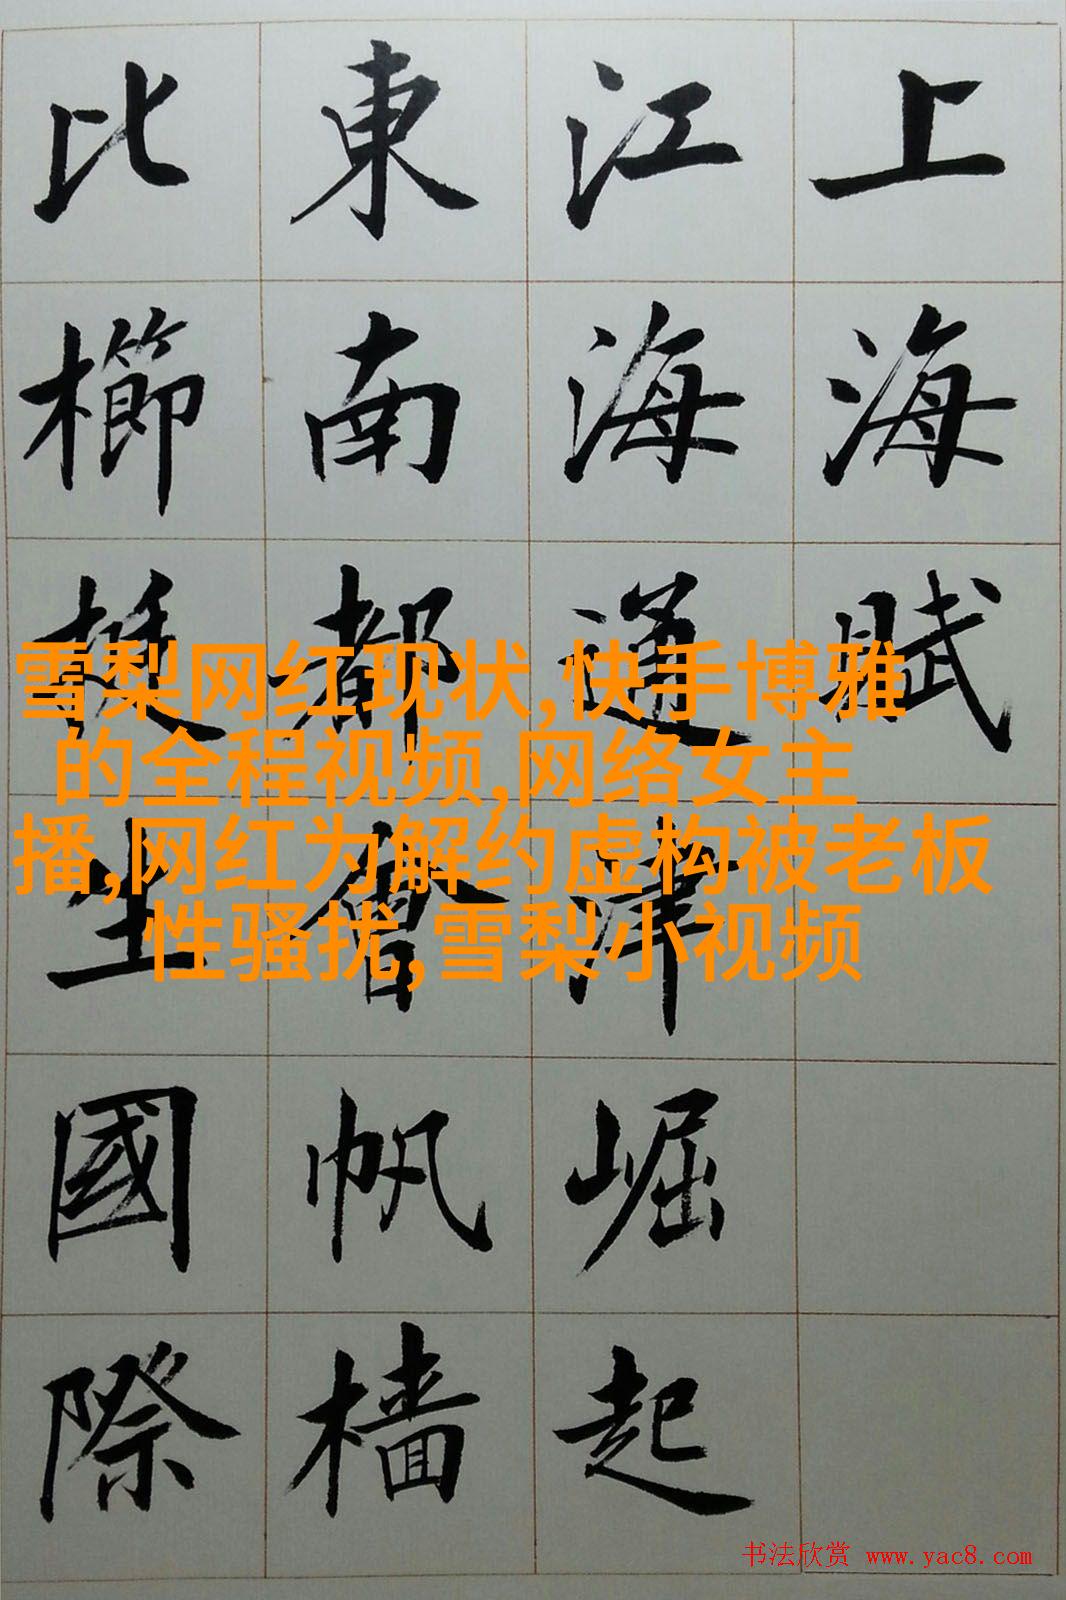 上海賦
江海通津崛起
東南都會帆檣
比櫛挺生國際
雪梨网红现状,快手博雅
的全程视频,网络女主
播,网红为解约虚构被老板
性骚扰,雪梨小视频
书法欣赏 www.yac8.com